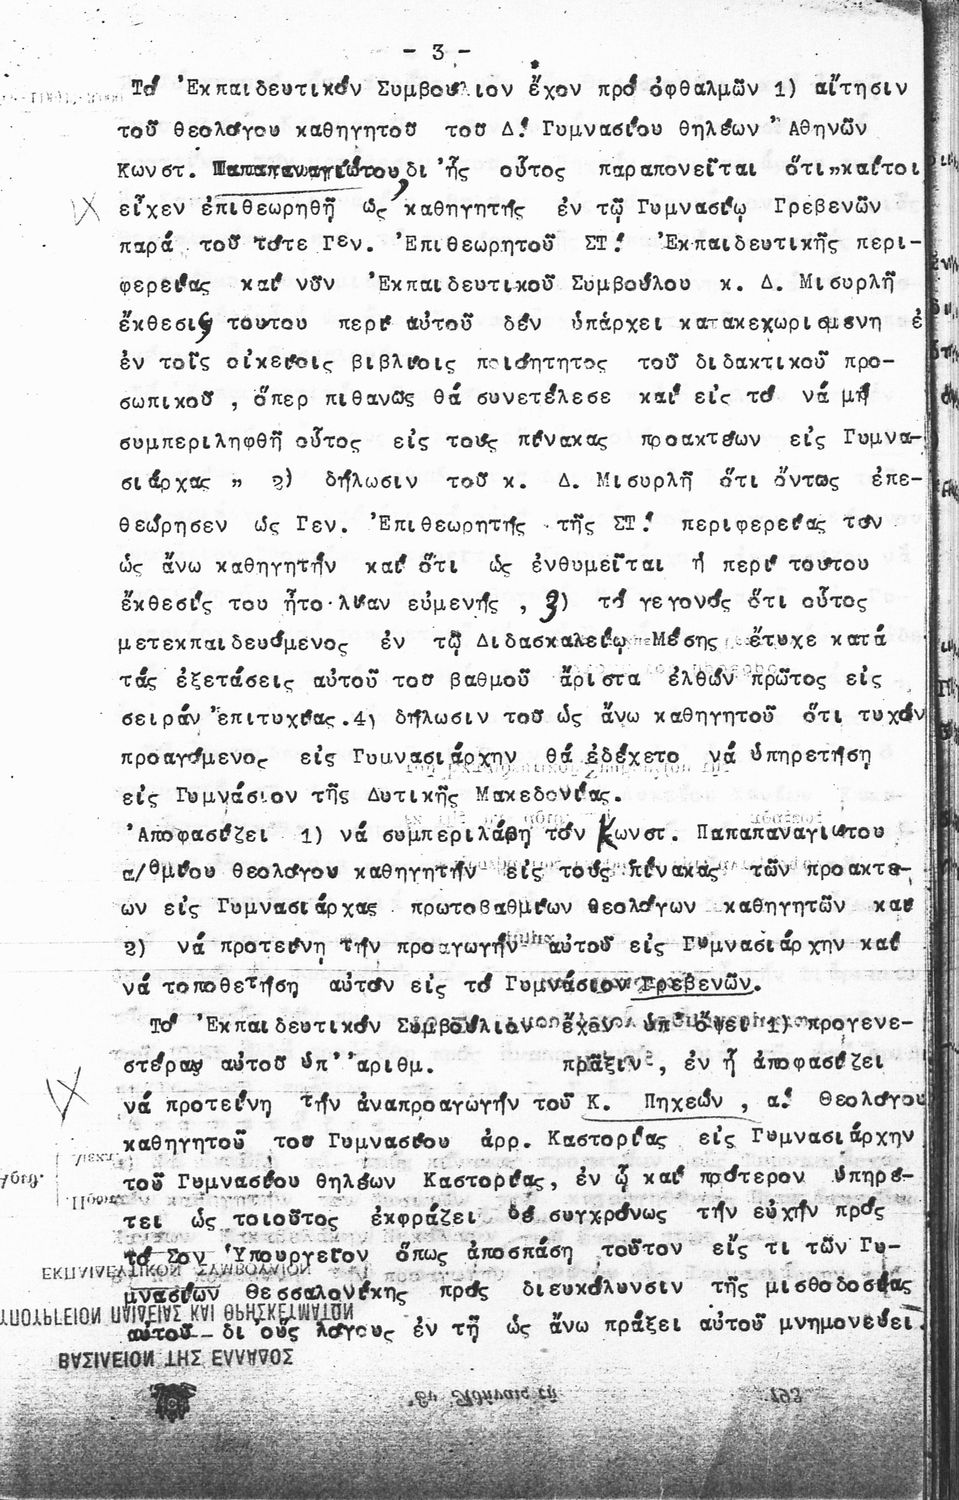 - 3 -
Τό Ἐκπαιδευτικόν Συμβούλιον ἔχον πρό ὀφθαλμῶν 1) αἴτησιν
τοῦ θεολόγου καθηγητοῦ τοῦ Δ! Γυμνασίου θηλέων Ἀθηνῶν
Κωνστ. Παπαπαναγιώτου, δι' ἧς οὗτος παραπονεῖται ὅτι "καίτοι
εἶχεν ἐπιθεωρηθῆ ὡς καθηγητής ἐν τῷ Γυμνασίῳ Γρεβενῶν
παρά τοῦ τότε Γεν. Ἐπιθεωρητοῦ ΣΤ! Ἐκπαιδευτικῆς περι-
φερείας καί νῦν Ἐκπαιδευτικοῦ Συμβούλου κ. Δ. Μισυρλῆ
ἔκθεσις τούτου περί αὐτοῦ δέν ὑπάρχει κατακεχωρισμένη ἐ
ἐν τοῖς οἰκείοις βιβλίοις ποιότητος τοῦ διδακτικοῦ προ-
σωπικοῦ , ὅπερ πιθανῶς θά συνετέλεσε καί εἰς τό νά μή
συμπεριληφθῆ οὗτος εἰς τούς πίνακας προακτέων εἰς Γυμνα-
σιάρχας " 2) δήλωσιν τοῦ κ. Δ. Μισυρλῆ ὅτι ὄντως ἐπε-
θεώρησεν ὡς Γεν. Ἐπιθεωρητής τῆς ΣΤ! περιφερείας τόν
ὡς ἄνω καθηγητήν καί ὅτι ὡς ἐνθυμεῖται ἡ περί τούτου
ἔκθεσίς του ἦτο λίαν εὐμενής , 3) τό γεγονός ὅτι οὗτος
μετεκπαιδευόμενος ἐν τῷ Διδασκαλείῳ Μέσης ἔτυχε κατά
τάς ἐξετάσεις αὐτοῦ τοῦ βαθμοῦ ἄριστα ἐλθών πρῶτος εἰς
σειράν ἐπιτυχίας. 4) δήλωσιν τοῦ ὡς ἄνω καθηγητοῦ ὅτι τυχόν
προαγόμενος εἰς Γυμνασιάρχην θά ἐδέχετο νά ὑπηρετήση
εἰς Γυμνάσιον τῆς Δυτικῆς Μακεδονίας.
Ἀποφασίζει 1) νά συμπεριλάβη τόν Κωνστ. Παπαπαναγιώτου
α/θμίου θεολόγου καθηγητήν εἰς τούς πίνακας τῶν προακτέ-
ων εἰς Γυμνασιάρχας πρωτοβαθμίων θεολόγων καθηγητῶν καί
2) νά προτείνη τήν προαγωγήν αὐτοῦ εἰς Γυμνασιάρχην καί
νά τοποθετήση αὐτόν εἰς τό Γυμνάσιον Γρεβενῶν.
Τό Ἐκπαιδευτικόν Συμβούλιον ἔχον ὑπ' ὄψει 1) προγενε-
στέραν αὐτοῦ ὑπ' ἀριθμ. πρᾶξιν , ἐν ᾗ ἀποφασίζει
νά προτείνη τήν ἀναπροαγωγήν τοῦ Κ. Πηχεών , α! θεολόγου
καθηγητοῦ τοῦ Γυμνασίου ἀρρ. Καστορίας εἰς Γυμνασιάρχην
τοῦ Γυμνασίου θηλέων Καστορίας, ἐν ᾧ καί πρότερον ὑπηρέ-
τει ὡς τοιοῦτος ἐκφράζει δέ συγχρόνως τήν εὐχήν πρός
τό Σον Ὑπουργεῖον ὅπως ἀποσπάση τοῦτον εἴς τι τῶν Γυ-
μνασίων Θεσσαλονίκης πρός διευκόλυνσιν τῆς μισθοδοσίας
αὐτοῦ δι' οὕς λόγους ἐν τῇ ὡς ἄνω πράξει αὐτοῦ μνημονεύει.